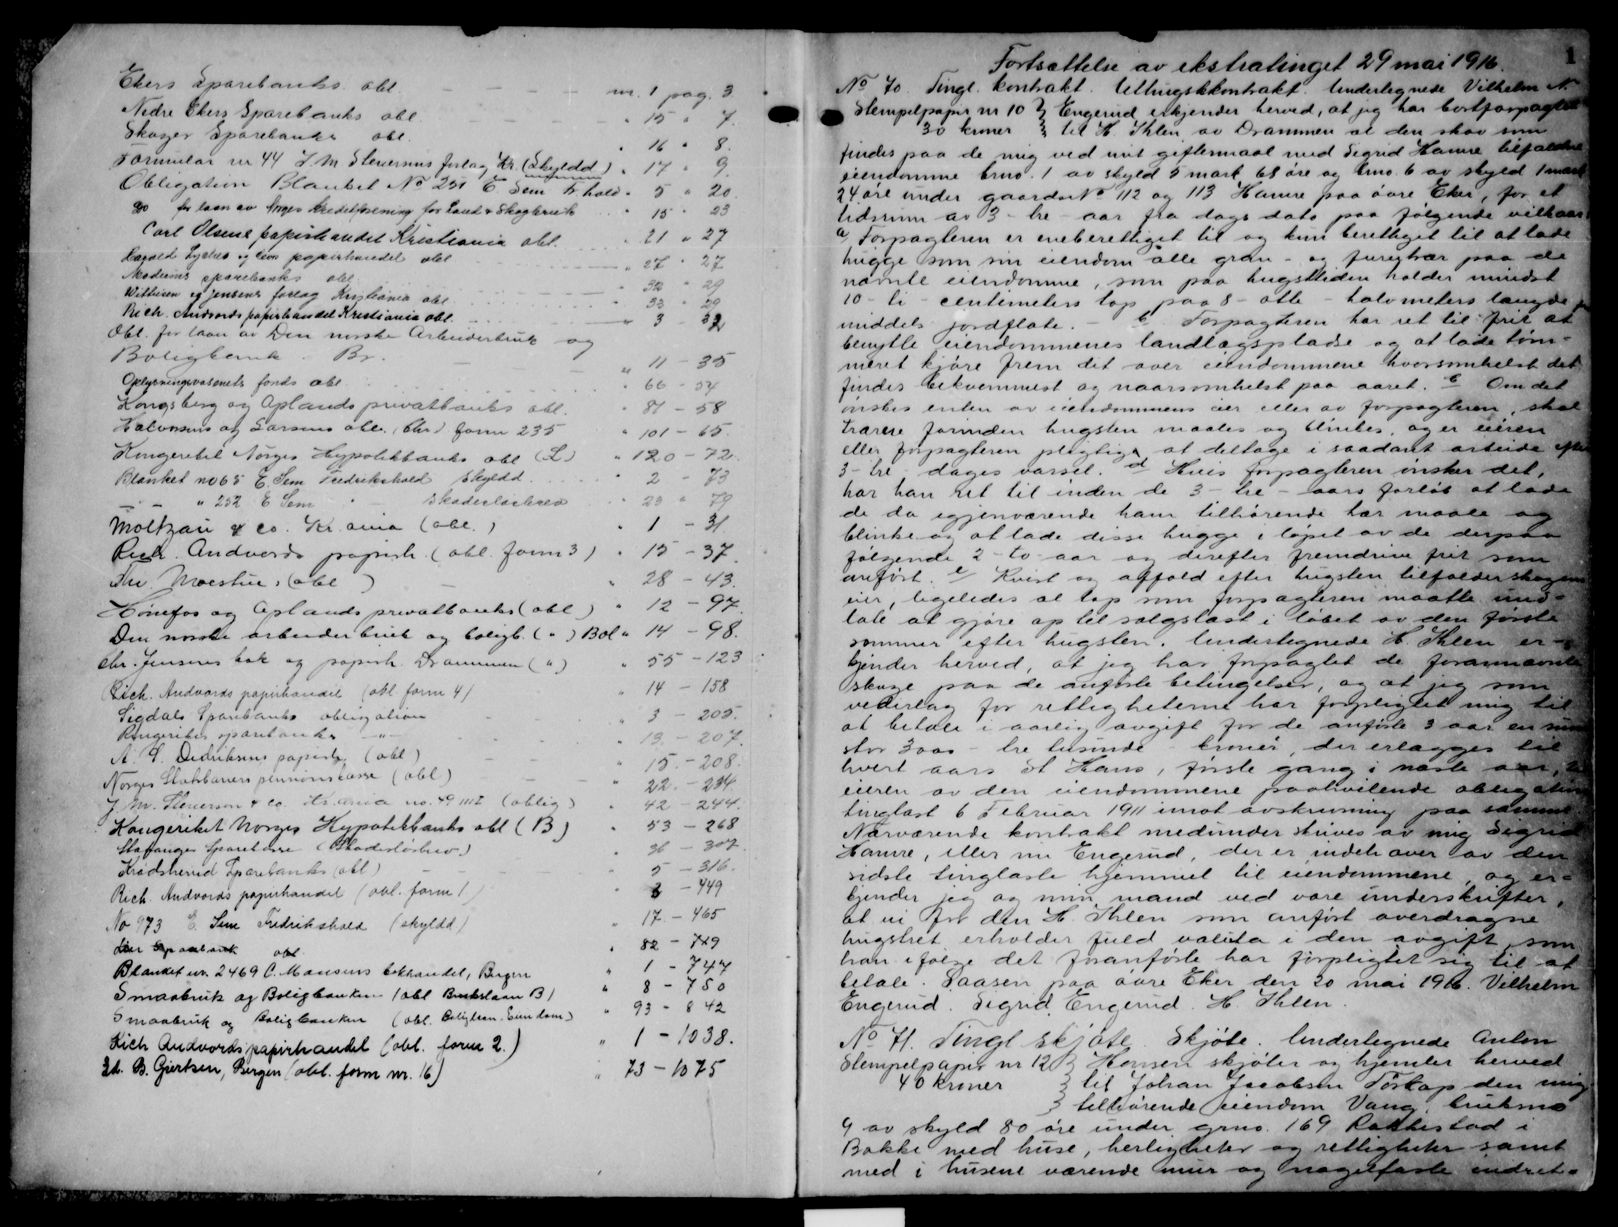 Ekers Sparebanks obl. nr. 1 pag. 3
Nedre Ekers Sparebanks obl. " 15 " 7.
Skoger Sparebanks obl. " 16 " 8.
Formular nr 44 J. M. Stenersens forlag Kr. (Skyldd) " 17 " 9.
Obligation Blanket No 251 E Sem Fr.hald " 5 " 20
do for laan av Norges kreditforening for Land & Skogbruk " 15 " 23
Carl Olsens papirhandel Kristiania obl. " 21 " 27
Harald Lyche og Co.s papirhandel obl " 27 " 27
Modums sparebanks obl " 32 " 29
Withusen og Jensens forlag Kristiania obl. " 33 " 29
Rich. Andvords papirhandel Kristiania obl. " 3 32
Obl. for laan av Den norske Arbeiderbruk og
Boligbank Br. " 11 - 35
Oplysningsvæsenets fonds obl. " 66 - 54
Kongsberg og Oplands privatbanks obl. " 87 - 58
Halvorsens og Larsens obl. (Chr.) form 235 " 101 - 65.
Kongeriket Norges Hypotekbanks obl (L) " 120 - 72.
Blanket no 65 E. Sem Fredrikshald Skyldd. 2 - 73
" 252 E Sem " Skadesløsbrev 23 " 79
Moltzau & co. Kr.ania (obl.) " 1 - 31
Rich. Andvords papirh. (obl. form 3) " 15 - 37.
Thv. Moestue, (obl) " 28 - 43.
Hønefos og Oplands privatbanks (obl) " 12 - 97.
Den norske arbeiderbruk og boligb. (") Bol " 14 - 98.
Chr. Jensens bok og papirh. Drammen (") " 55 - 123
Rich. Andvords papirhandel (obl form 4) " 14 - 158
Sigdals Sparebanks obligation " 3 - 205.
Ringerikes sparebanks -"- " 13 - 207.
A. S. Didriksens papirh. (obl) " 15. - 208.
Norges Statsbaners pensionskasse (obl) " 22. - 234
J. M. Stenersen & co. Kr.ania no. 49 III I (oblig) " 42 - 244.
Kongeriket Norges Hypotekbanks obl (B) " 53 - 268
Stavanger Sparekasse (Skadesløsbrev.) " 36 - 307.
Krødsherred Sparebanks (obl) " 5 - 316.
Rich. Andvords papirhandel (obl. form 1) " 3 - 449
No 973 E. Sem Fredrikshald (skyldd) " 17. - 465
Lier Sparebank obl " 82 - 729
Blanket nr. 2469 C. Monsens bokhandel, Bergen " 1 - 747
Smaabruk og Boligbanken (obl Brukslaan B) " 8 - 750
Smaabruk og Boligbanken (obl. Boliglaan. Eiendom) " 93 - 842
Rich Andvords papirhandel (obl. form 2.) " 1 - 1038.
Ed. B. Giertsen, Bergen (obl. form nr. 16) " 73 - 1075
1
Fortsættelse av ekstratinget 29 mai 1916.
No 70. Tingl. kontrakt. Uthugstkontrakt. Undertegnede Vilhelm N.
Stempelpapir nr 10 } Engerud erkjender herved, at jeg har bortforpagtet
30 kroner } til H. Ihlen av Drammen al den skov som
findes paa de mig ved mit giftermaal med Sigrid Hamre tilfaldne
eiendomme brno. 1 av skyld 5 mark 68 øre og brno. 6 av skyld 1 mark
24 øre under gaardsno 112 og 113 Hamre paa øvre Eker, for et
tidsrum av 3 - tre - aar fra dags dato paa følgende vilkaar:
a/ Forpagteren er eneberettiget til og kun berettiget til at lade
hugge som sin eiendom alle gran - og furutrær paa de
nævnte eiendomme, som paa hugsttiden holder mindst
10 - ti - centimeters top paa 8 - otte - halvmeters længde fra
middels jordflate. - b. Forpagteren har ret til frit at
benytte eiendommenes landlægspladse og at lade tøm-
meret kjøre frem det over eiendommene hvorsomhelst det
findes bekvemmest og naarsomhelst paa aaret. c. Om det
ønskes enten av eiendommens eier eller av forpagteren, skal
trærne forinden hugsten maales og blinkes, og er eieren
eller forpagteren pligtig at deltage i saadant arbeide efter
3 - tre dages varsel. d Hvis forpagteren ønsker det,
har han ret til inden de 3 - tre - aars forløb at lade
de da igjenværende ham tilhørende trær maale og
blinke og at lade disse hugge i løpet av de derpaa
følgende 2 - to - aar og derefter fremdrive frit som
anført. e/ Kvist og affald efter hugsten tilfalder skogens
eier, ligeledes al top som forpagteren maatte und-
late at gjøre op til salgslast i løbet av den første
sommer efter hugsten. Undertegnede H. Ihlen er-
kjender herved, at jeg har forpagtet de forannævnte
skoge paa de anførte betingelser, og at jeg som
vederlag for rettigheterne har forpligtet mig til
at betale i aarlig avgift for de anførte 3 aar en sum
stor 3000 - tre tusinde - kroner, der erlægges til
hvert aars St Hans, første gang i næste aar, til
eieren av den eiendommene paahvilende obligation
tinglæst 6 Februar 1911 imot avskrivning paa samme
Nærværende kontrakt medunderskrives av mig Sigrid
Hamre, eller nu Engerud, der er indehaver av den
sidste tinglæste hjemmel til eiendommene, og er-
kjender jeg og min mand ved vore underskrifter,
at vi for den H. Ihlen som anført overdragne
hugstret erholder fuld valuta i den avgift, som
han ifølge det foranførte har forpligtet sig til at
betale. Saasen paa øvre Eker den 20 mai 1916. Vilhelm
Engerud. Sigrid Engerud. H. Ihlen.
No 71. Tingl. skjøte. Skjøte. Undertegnede Anton
Stempelpapir nr 12 } Hansen skjøter og hjemler herved
40 kroner } til Johan Jacobsen Torkop den mig
} tilhørende eiendom Vang, bruksno
9 av skyld 80 øre under grno. 169 Rakkestad i
Bakke med huse, herligheter og rettigheter samt
med i husene værende mur og nagelfaste indret-